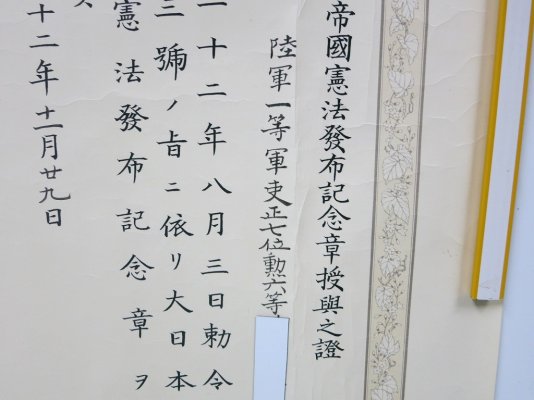 帝國憲法發布記念章授與之證
陸軍一等軍吏正七位勲六等
二十二年八月三日勅令
三號ノ旨ニ依リ大日本
憲法發布記念章ヲ
十二年十一月廿九日